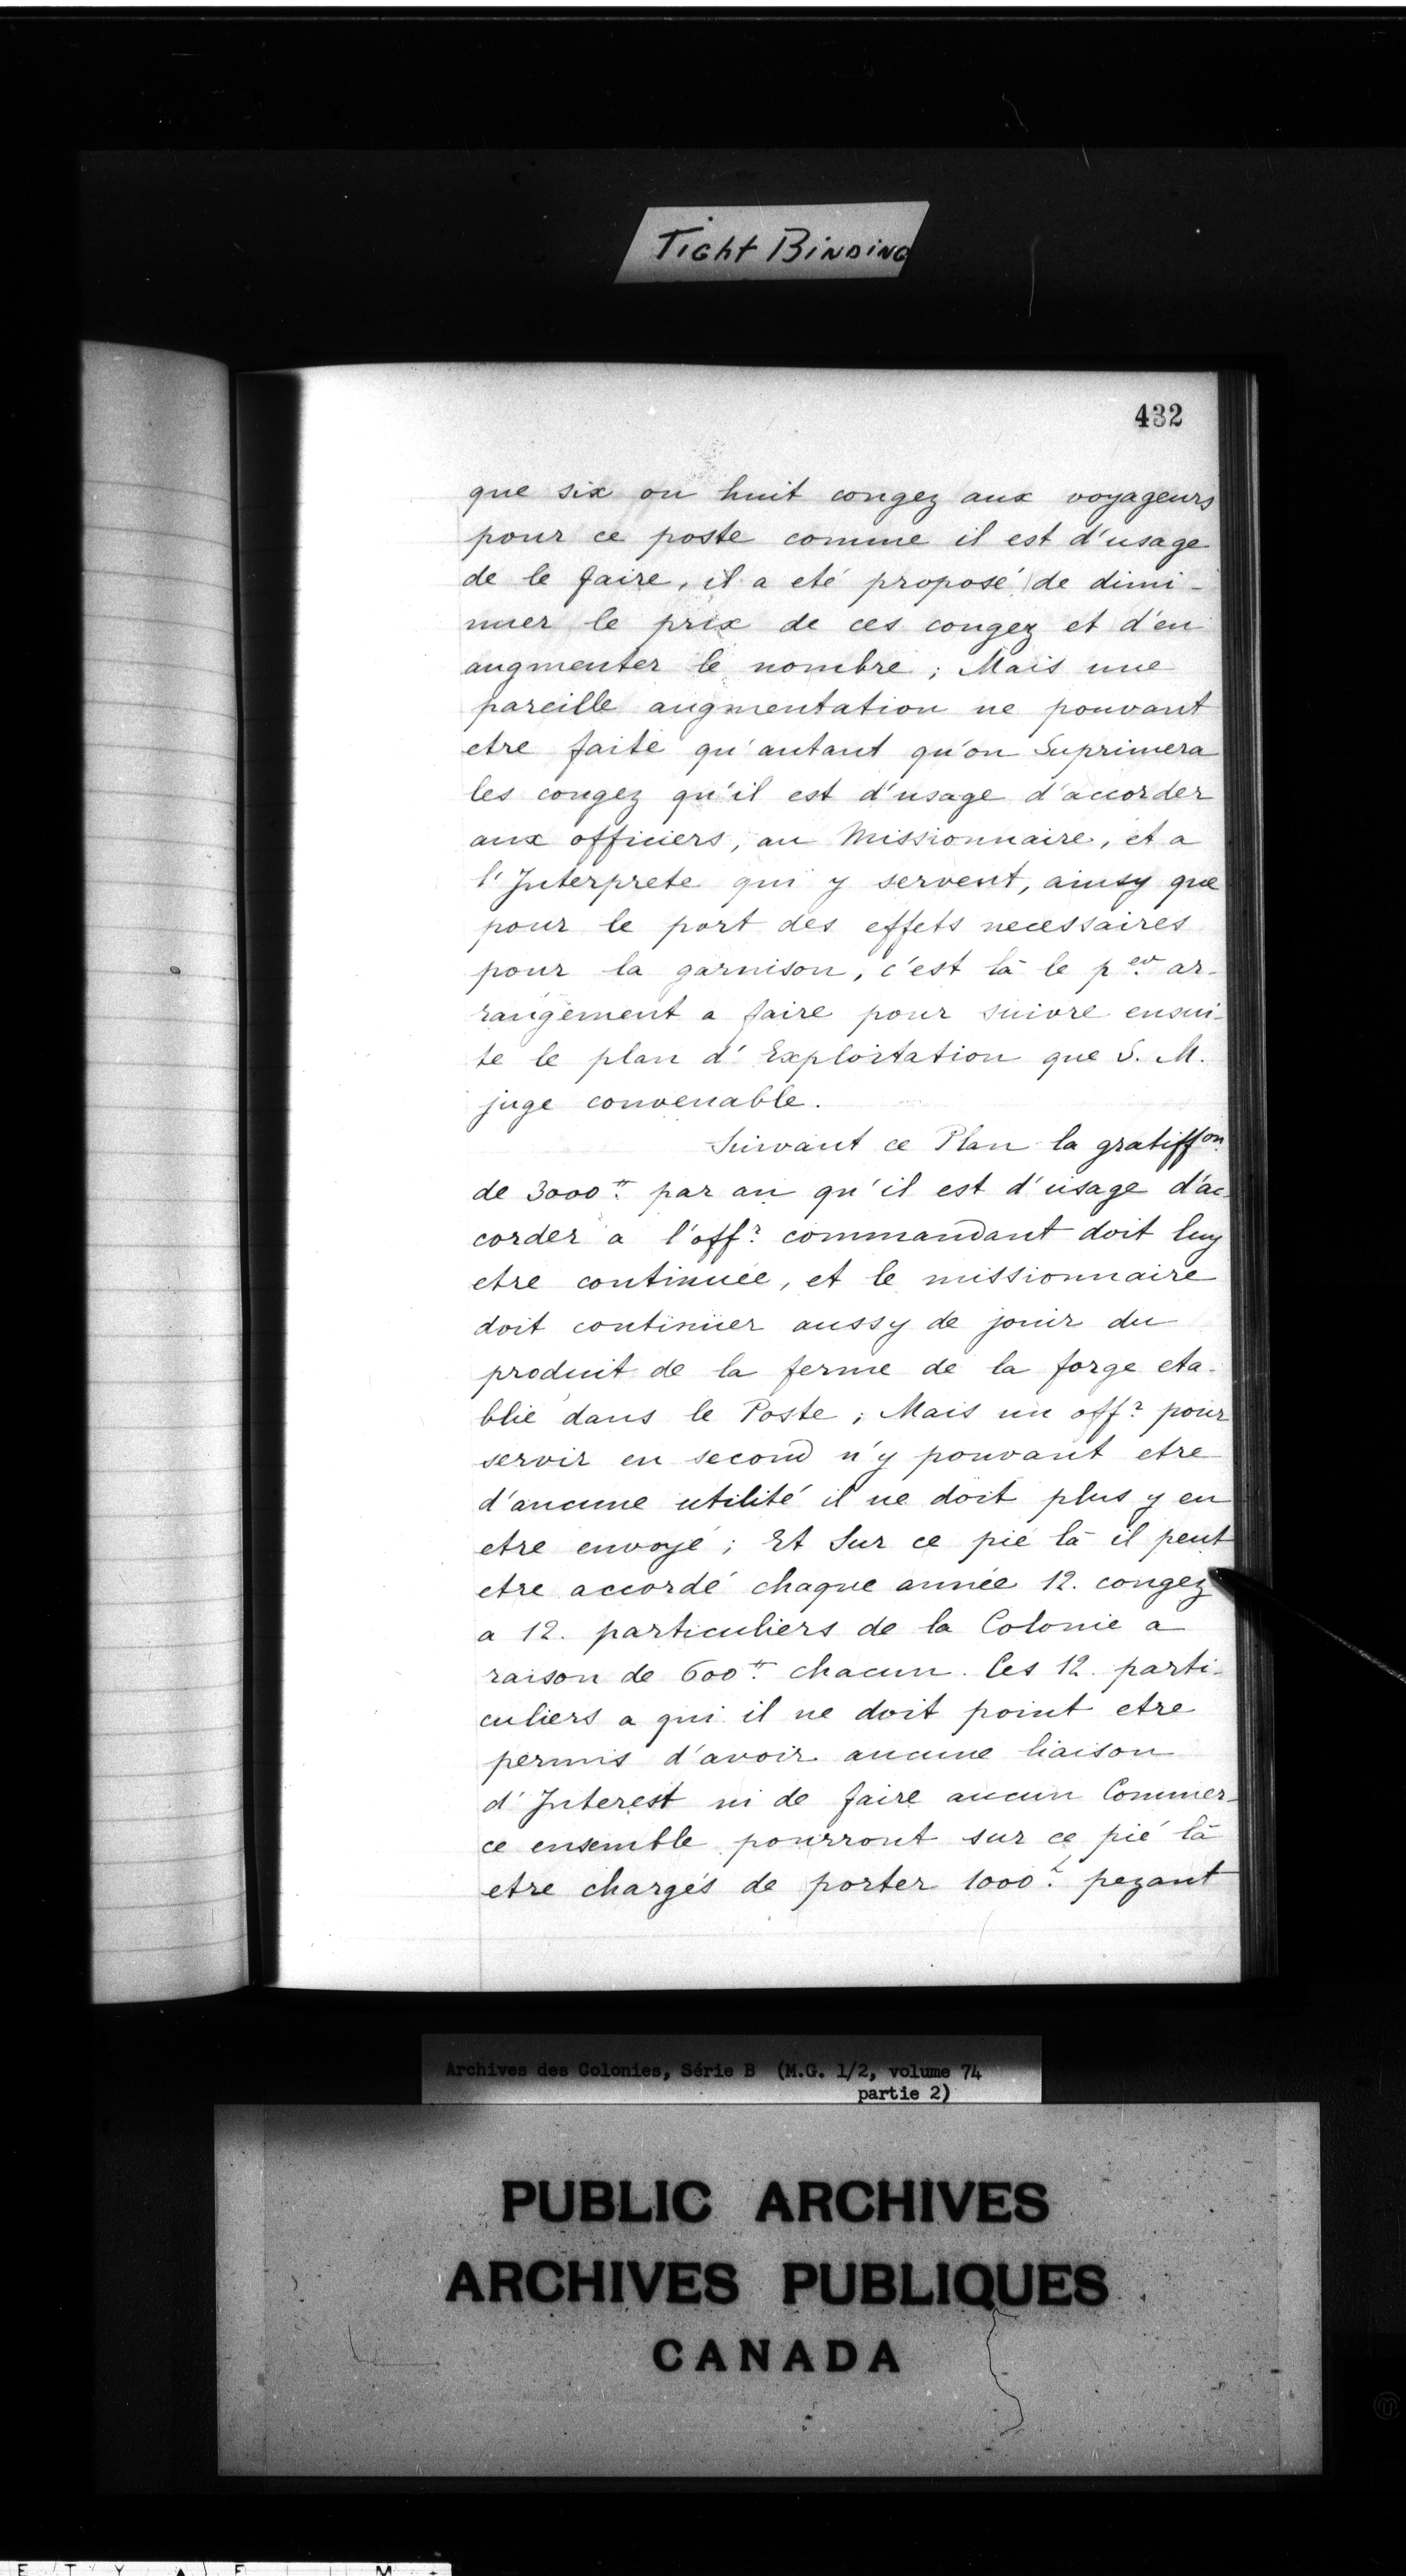 Tight Binding
432
que six ou huit congez aux voyageurs
pour ce poste comme il est d'usage
de le faire, il a eté proposé de dimi-
nuer le prix de ces congez et d'en
augmenter le nombre ; Mais une
pareille augmentation ne pouvant
etre faite qu'autant qu'on Suprimera
les congez qu'il est d'usage d'accorder
aux officiers, au Missionnaire, et a
l'Interprete qui y servent, ainsy que
pour le port des effets necessaires
pour la garnison, c'est là le p.er ar-
rangement a faire pour suivre ensui-
te le plan d'Exploitation que S. M.
juge convenable.
Suivant ce Plan la gratiff.on
de 3000.tt par an qu'il est d'usage d'ac-
corder a l'off.r commandant doit luy
etre continuée, et le missionnaire
doit continüer aussy de jouir du
produit de la ferme de la forge eta-
blie dans le Poste ; Mais un off.r pour
servir en second n'y pouvant etre
d'aucune utilité il ne doit plus y en
etre envoyé ; Et Sur ce pié là il peut
etre accordé chaque année 12. congez
a 12. particuliers de la Colonie a
raison de 600.tt chacun. Ces 12. parti-
culiers a qui il ne doit point etre
permis d'avoir aucune liaison
d'Interest ni de faire aucun Commer-
ce ensemble pourront sur ce pié là
etre chargés de porter 1000.l pezant
Archives des Colonies, Série B (M.G. 1/2, volume 74
partie 2)
PUBLIC ARCHIVES
ARCHIVES PUBLIQUES
CANADA